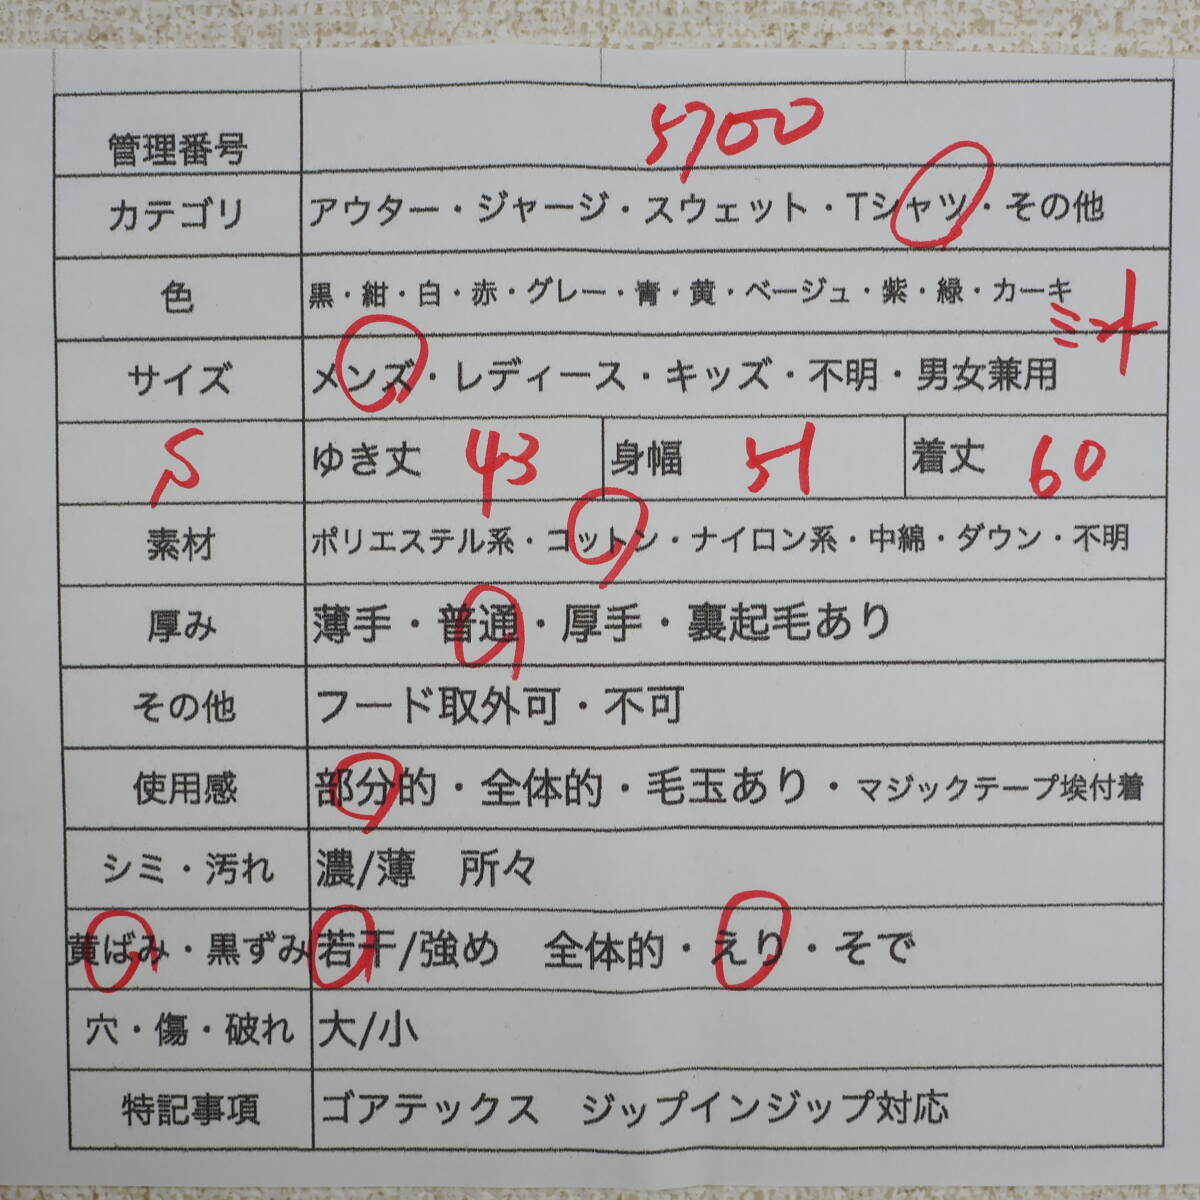 管理番号 5700
カテゴリ アウター・ジャージ・スウェット・Tシャツ・その他
色 黒・紺・白・赤・グレー・青・黄・ベージュ・紫・緑・カーキ
ミント
サイズ メンズ・レディース・キッズ・不明・男女兼用
S ゆき丈 43 身幅 51 着丈 60
素材 ポリエステル系・コットン・ナイロン系・中綿・ダウン・不明
厚み 薄手・普通・厚手・裏起毛あり
その他 フード取外可・不可
使用感 部分的・全体的・毛玉あり・マジックテープ埃付着
シミ・汚れ 濃/薄 所々
黄ばみ・黒ずみ 若干/強め 全体的・えり・そで
穴・傷・破れ 大/小
特記事項 ゴアテックス ジップインジップ対応